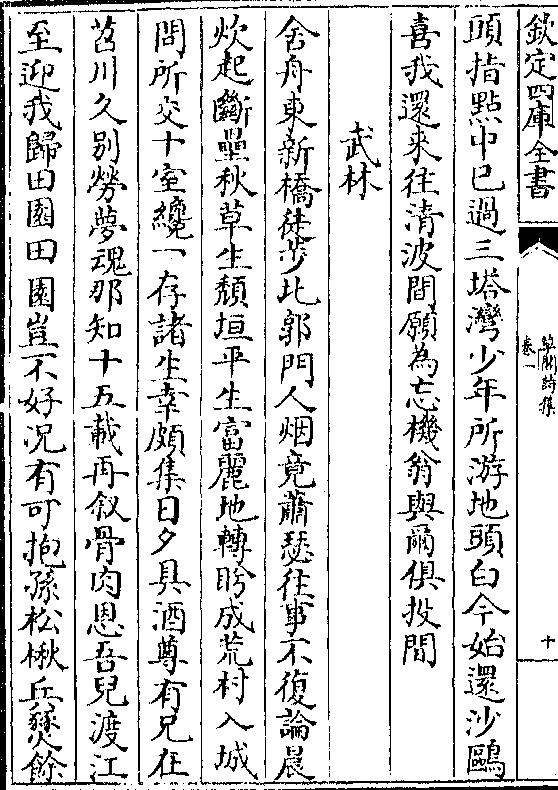 欽定四庫全書
草閣詩集
卷一
十
頭指點中已過三塔灣少年所游地頭白今始還沙鷗
喜我還來往清波間願為忘機翁與爾俱投閒
武林
舍舟東新橋徒步北郭門人烟竟蕭瑟往事不復論晨
炊起斷壘秋草生頹垣平生富麗地轉盻成荒村入城
問所交十室纔一存諸生幸頗集日夕具酒尊有兄在
苕川久别勞夢魂那知十五載再叙骨肉恩吾兒渡江
至迎我歸田園田園豈不好况有可抱孫松楸兵燹餘